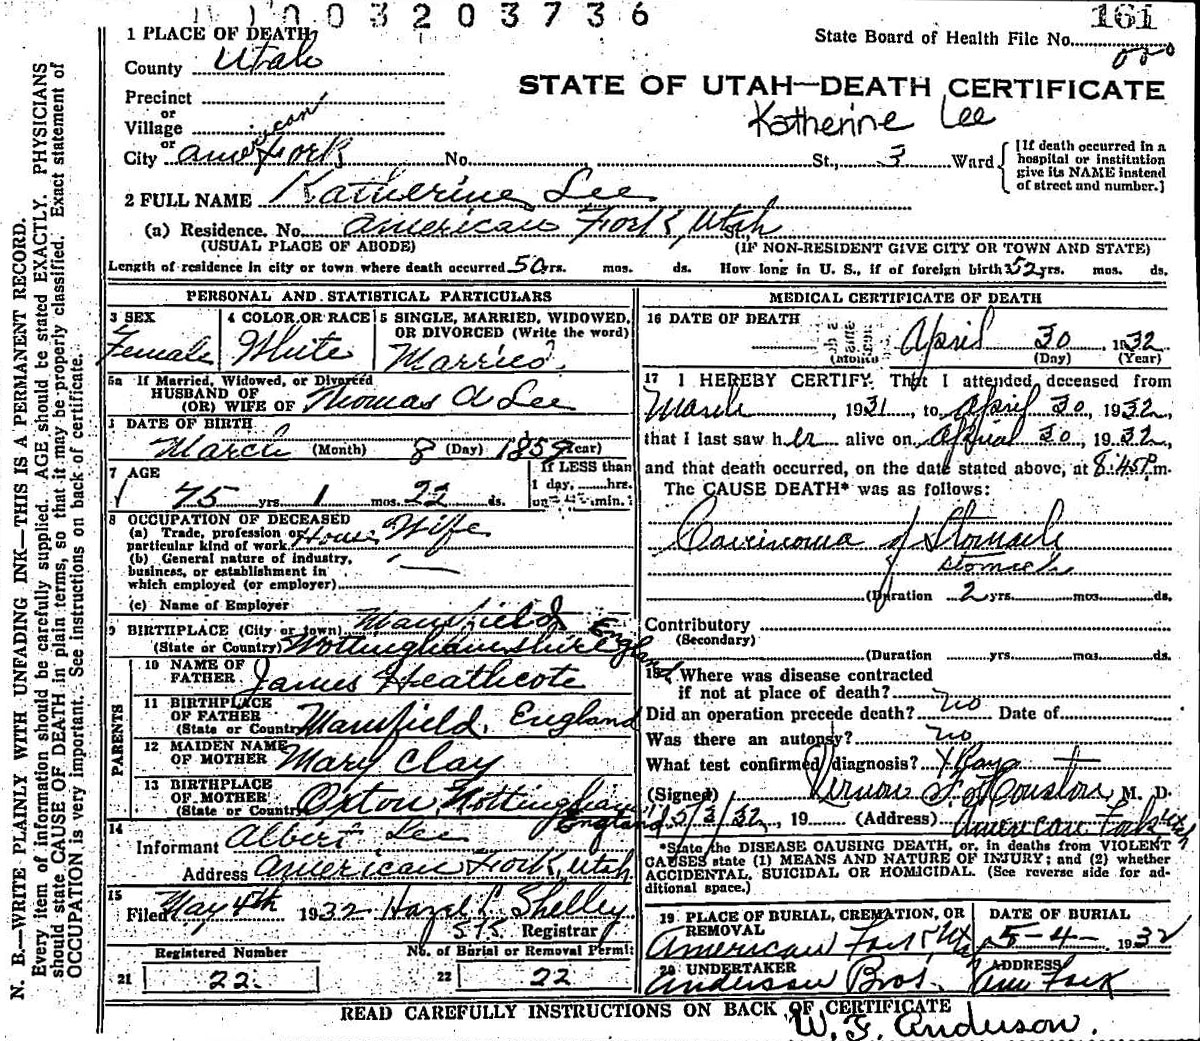 1 0 0 3 2 0 3 7 3 6
161
1 PLACE OF DEATH
State Board of Health File No.
County Utah
STATE OF UTAH—DEATH CERTIFICATE
Katherine Lee
Precinct
or
Village
or
City American Fork No. St., 3 Ward
[If death occurred in a
hospital or institution
give its NAME instead
of street and number.]
2 FULL NAME Katherine Lee
(a) Residence. No. American Fork, Utah
(USUAL PLACE OF ABODE) (IF NON-RESIDENT GIVE CITY OR TOWN AND STATE)
Length of residence in city or town where death occurred 50 yrs. mos. ds. How long in U. S., if of foreign birth 52 yrs. mos. ds.
PERSONAL AND STATISTICAL PARTICULARS
3 SEX
Female
4 COLOR OR RACE
White
5 SINGLE, MARRIED, WIDOWED,
OR DIVORCED (Write the word)
Married
5a If Married, Widowed, or Divorced
HUSBAND OF
(OR) WIFE OF Thomas A Lee
DATE OF BIRTH
March (Month) 8 (Day) 1859 (Year)
7 AGE
75 yrs. 1 mos. 22 ds.
If LESS than
1 day, hrs.
or min.
8 OCCUPATION OF DECEASED
(a) Trade, profession or
particular kind of work House Wife
(b) General nature of industry,
business, or establishment in
which employed (or employer)
(c) Name of Employer
9 BIRTHPLACE (City or town) Mansfield
(State or Country) Nottinghamshire England
PARENTS
10 NAME OF
FATHER James Heathcote
11 BIRTHPLACE
OF FATHER
(State or Country) Mansfield, England
12 MAIDEN NAME
OF MOTHER Mary Clay
13 BIRTHPLACE
OF MOTHER
(State or Country) Oxton Nottingham
England
14
Informant Albert Lee
Address American Fork, Utah
15
Filed May 4th 1932 Hazel L Shelley
Registrar
Registered Number
21 22
No. of Burial or Removal Permit
22 22
MEDICAL CERTIFICATE OF DEATH
16 DATE OF DEATH
April 30 1932
(Month) (Day) (Year)
17 I HEREBY CERTIFY, That I attended deceased from
March, 1931, to April 30, 1932,
that I last saw her alive on April 30, 1932,
and that death occurred, on the date stated above, at 8:45 P.m.
The CAUSE DEATH* was as follows:
Carcinoma of Stomach
Stomach
(Duration 2 yrs. mos. ds.
Contributory
(Secondary)
(Duration yrs. mos. ds.
18 Where was disease contracted
if not at place of death?
Did an operation precede death? no Date of
Was there an autopsy? no
What test confirmed diagnosis? X Rays +
(Signed) Vernon F. Houston, M. D.
5/3/32, 19 (Address) American Fork Utah
*State the DISEASE CAUSING DEATH, or, in deaths from VIOLENT
CAUSES state (1) MEANS AND NATURE OF INJURY; and (2) whether
ACCIDENTAL, SUICIDAL OR HOMICIDAL. (See reverse side for ad-
ditional space.)
19 PLACE OF BURIAL, CREMATION, OR
REMOVAL
American Fork Utah
DATE OF BURIAL
5-4- 1932
20 UNDERTAKER
Anderson Bros.
ADDRESS
Am Fork
READ CAREFULLY INSTRUCTIONS ON BACK OF CERTIFICATE
W. F. Anderson.
N. B.—WRITE PLAINLY WITH UNFADING INK—THIS IS A PERMANENT RECORD.
Every item of information should be carefully supplied. AGE should be stated EXACTLY. PHYSICIANS
should state CAUSE OF DEATH in plain terms, so that it may be properly classified. Exact statement of
OCCUPATION is very important. See instructions on back of certificate.